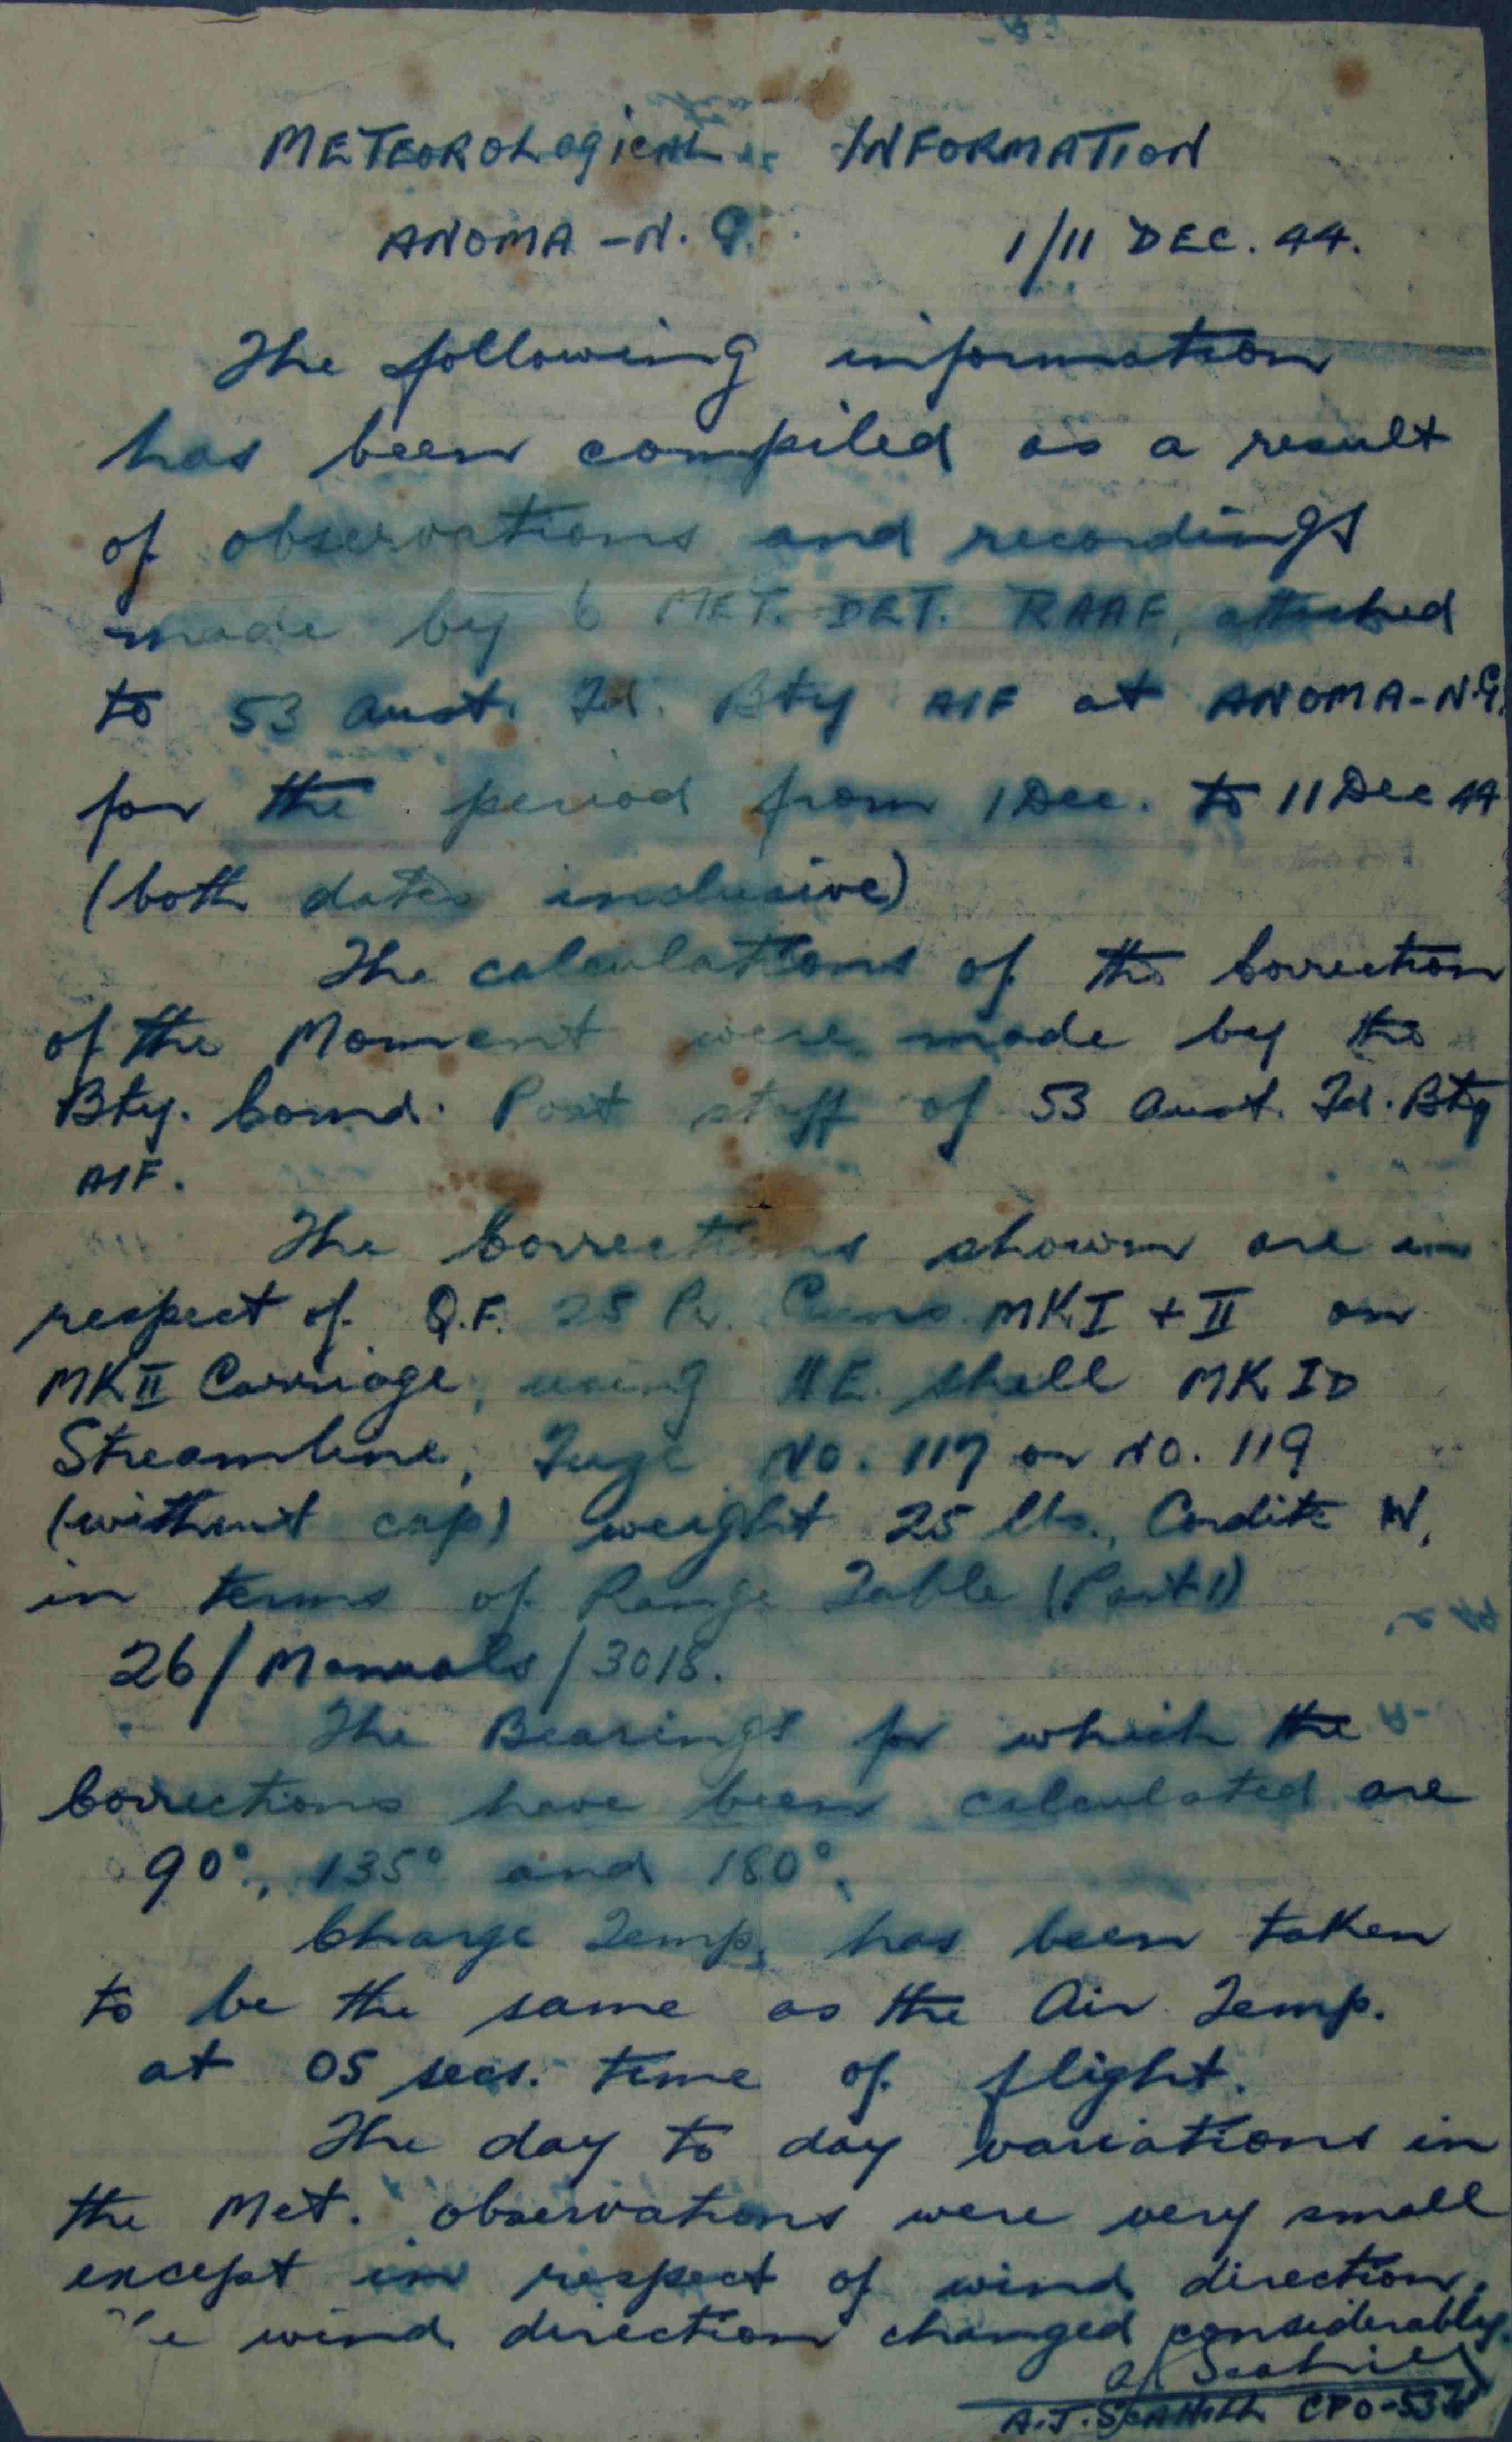 METEOROLOGICAL INFORMATION
ANOMA - N.G. 1/11 DEC. 44.
The following information
has been compiled as a result
of observations and recordings
made by 6 MET. DET. RAAF, attached
to 53 Aust. Fd. Bty AIF at ANOMA-N.G.
for the period from 1 Dec. to 11 Dec 44
(both dates inclusive)
The calculations of the Correction
of the Moment were made by the
Bty. Comd. Post staff of 53 Aust. Fd. Bty
AIF.
The Corrections shown are in
respect of Q.F. 25 Pr. Guns MK I + II on
MK II Carriage, using HE shell MK ID
Streamline, Fuze No. 117 or No. 119
(without cap) weight 25 lbs., Cordite W,
in terms of Range Table (Part 1)
26/Manuals/3018.
The Bearings for which the
Corrections have been calculated are
90°, 135° and 180°.
Charge Temp. has been taken
to be the same as the Air Temp.
at 05 secs. time of flight.
The day to day variations in
the Met. observations were very small
except in respect of wind direction.
wind direction changed considerably.
A.J. Scahill CPO-53